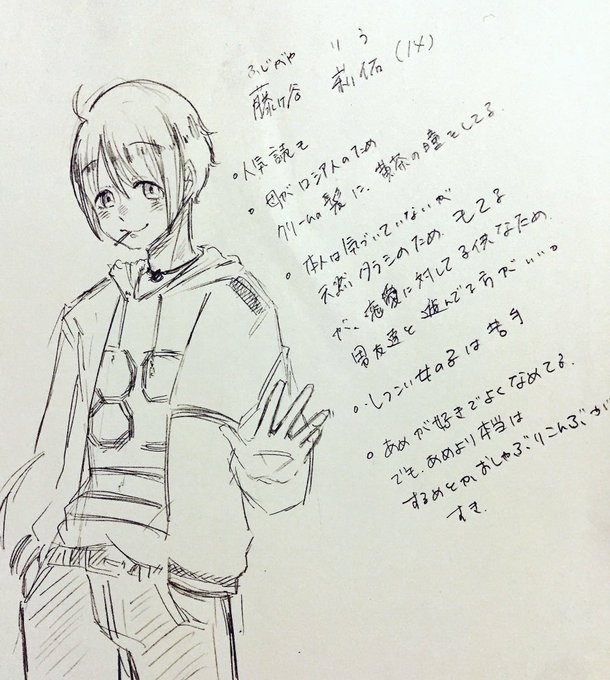 ふじがや りう
藤ヶ谷 莉佑 (14)
○人気読モ
○母がロシア人のため
クリームの髪に、黄茶の瞳をしてる。
○本人は気づいていないが
天然タラシのため、モてる
が、恋愛に対して子供なため、
男友達と遊んでる方がいい。
○しつこい女の子は苦手
○あめが好きでよくなめてる。
でも、あめより本当は
するめとかおしゃぶりこんぶが
すき。